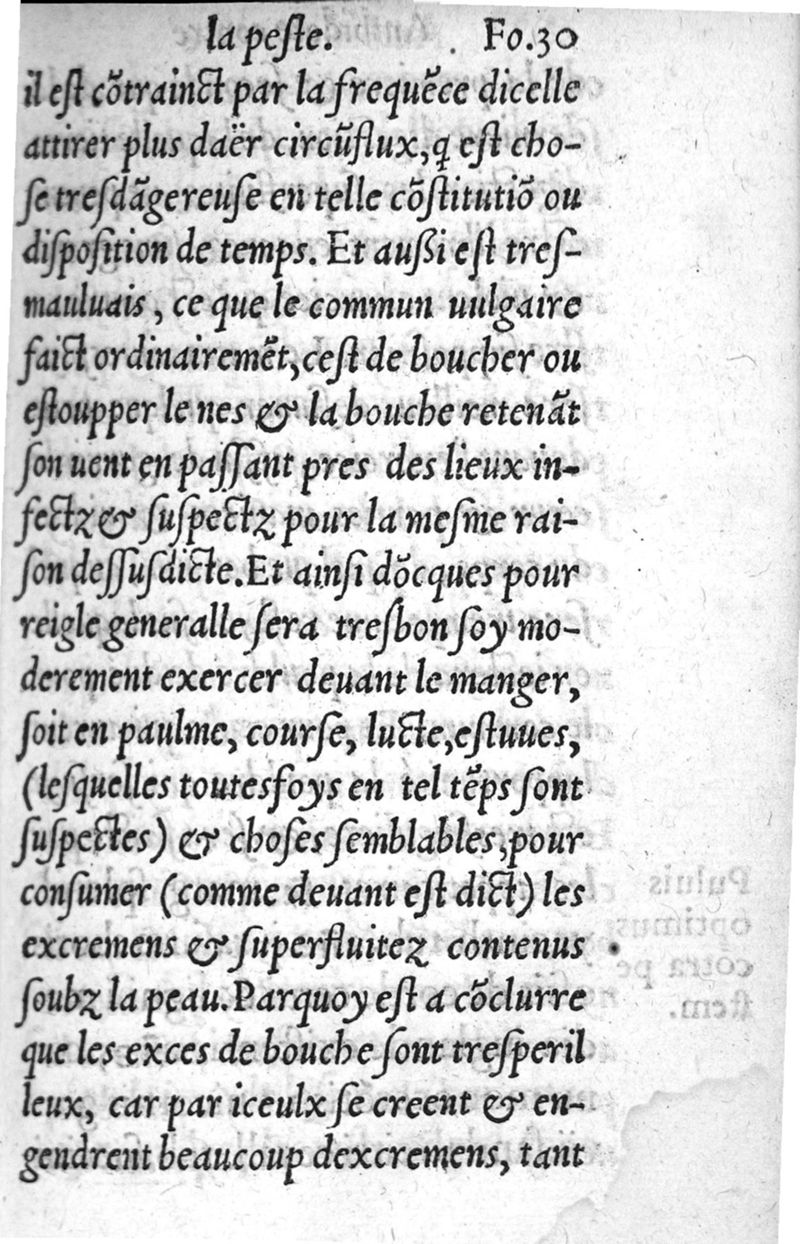 la peſte. Fo.30
il eſt cõtrainct par la frequẽce dicelle
attirer plus daër circũflux,q̃ eſt cho-
ſe treſdãgereuſe en telle cõſtitutiõ ou
diſpoſition de temps. Et auſſi eſt treſ-
mauluais, ce que le commun uulgaire
faict ordinairemẽt,ceſt de boucher ou
eſtoupper le nes & la bouche retenãt
ſon uent en paſſant pres des lieux in-
fectz & ſuſpectz pour la meſme rai-
ſon deſſuſdicte.Et ainſi dõcques pour
reigle generalle ſera treſbon ſoy mo-
derement exercer deuant le manger,
ſoit en paulme, courſe, lucte,eſtuues,
(leſquelles toutesfoys en tel tẽps ſont
ſuſpectes) & choſes ſemblables,pour
conſumer (comme deuant eſt dict) les
excremens & ſuperfluitez contenus
ſoubz la peau.Parquoy eſt a cõclurre
que les exces de bouche ſont treſperil
leux, car par iceulx ſe creent & en-
gendrent beaucoup dexcremens, tant
Puluis
optimus
cõtra pe
ſtem.